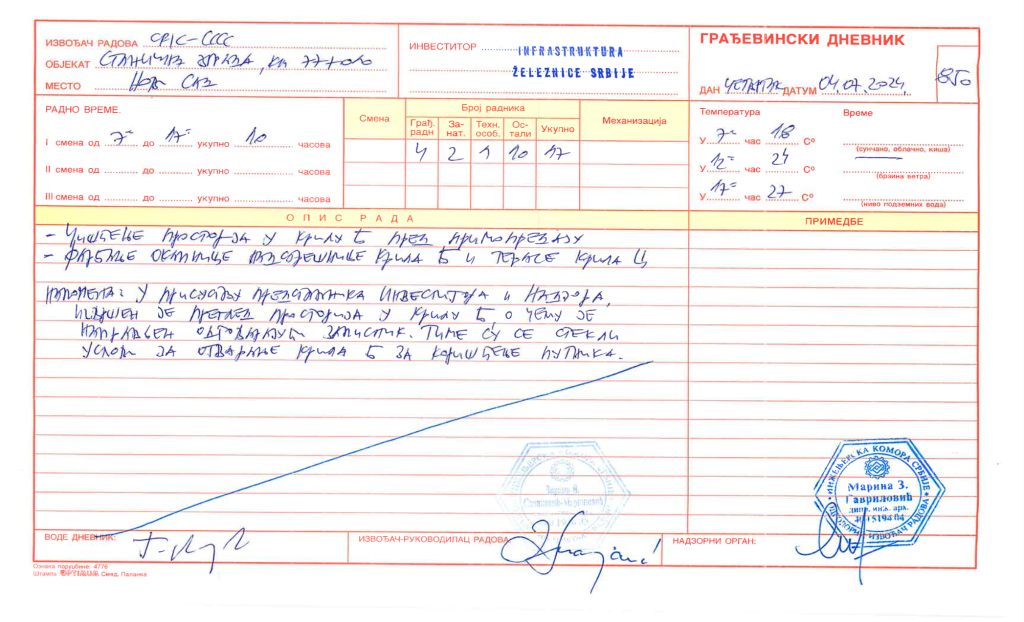 ГРАЂЕВИНСКИ ДНЕВНИК
ИЗВОЂАЧ РАДОВА CRIC-CCCC
ИНВЕСТИТОР INFRASTRUKTURA
ŽELEZNICE SRBIJE
ОБЈЕКАТ СТАНИЧНА ЗГРАДА, КМ 77+0
МЕСТО НОВИ САД
ДАН ЧЕТВРТАК ДАТУМ 04.07.2024.
850
РАДНО ВРЕМЕ.
I смена од 7⁰⁰ до 17⁰⁰ укупно 10 часова
II смена од до укупно часова
III смена од до укупно часова
Смена
Број радника
Грађ. радн
За- нат.
Техн. особ.
Ос- тали
Укупно
Механизација
4 2 1 10 17
Температура Време
У 7⁰⁰ час 18 С°
(сунчано, облачно, киша)
У 12⁰⁰ час 24 С°
(брзина ветра)
У 17⁰⁰ час 27 С°
(ниво подземних вода)
ОПИС РАДА
ПРИМЕДБЕ
- ЧИШЋЕЊЕ ПРОСТОРИЈА У КРИЛУ Б ПРЕД ПРИМОПРЕДАЈУ
- ФАРБАЊЕ ОКАПНИЦЕ НАДСТРЕШНИЦЕ КРИЛА Б И ТЕРАСЕ КРИЛА Ц
НАПОМЕНА: У ПРИСУСТВУ ПРЕДСТАВНИКА ИНВЕСТИТОРА И НАДЗОРА,
ИЗВРШЕН ЈЕ ПРЕГЛЕД ПРОСТОРИЈА У КРИЛУ Б О ЧЕМУ ЈЕ
НАПРАВЉЕН ОДГОВАРАЈУЋИ ЗАПИСНИК. ТИМЕ СУ СЕ СТЕКЛИ
УСЛОВИ ЗА ОТВАРАЊЕ КРИЛА Б ЗА КОРИШЋЕЊЕ ПУТНИКА.
ИНЖЕЊЕРСКА КОМОРА СРБИЈЕ
Марина З.
Гавриловић
дипл. инж. арх.
ИЗВОЂАЧ РАДОВА
ВОДЕ ДНЕВНИК:
ИЗВОЂАЧ-РУКОВОДИЛАЦ РАДОВА
НАДЗОРНИ ОРГАН:
Ознака поруџбине: 4776
Штампа: OPTIMUM Смед. Паланка